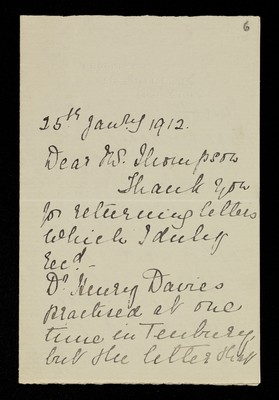 6
25th Janry 1912.
Dear Mr. Thompson
Thank you
for returning letters
which I duly
recd. -
Dr Henry Davies
practised at one
time in Tenbury,
but the letter that